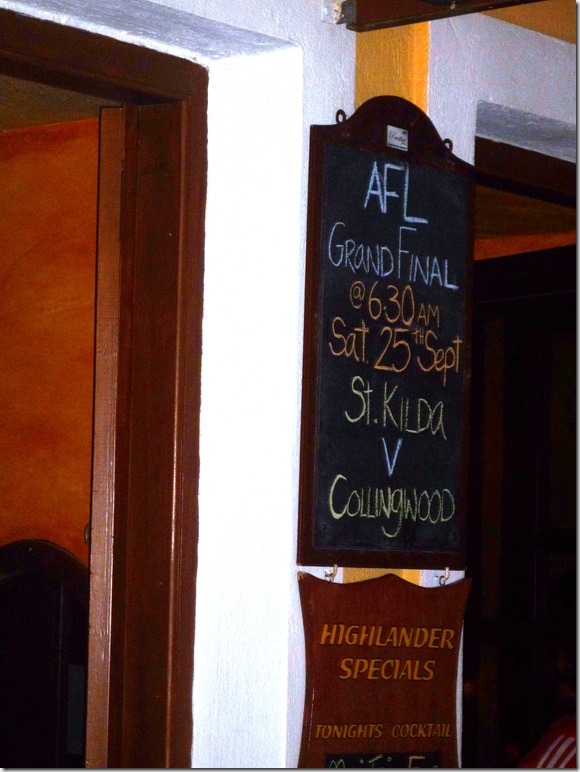 AFL
GRAND FINAL
@ 6.30 AM
Sat. 25TH Sept
St. KILDA
V
COLLINGWOOD
HIGHLANDER
SPECIALS
TONIGHTS COCKTAIL